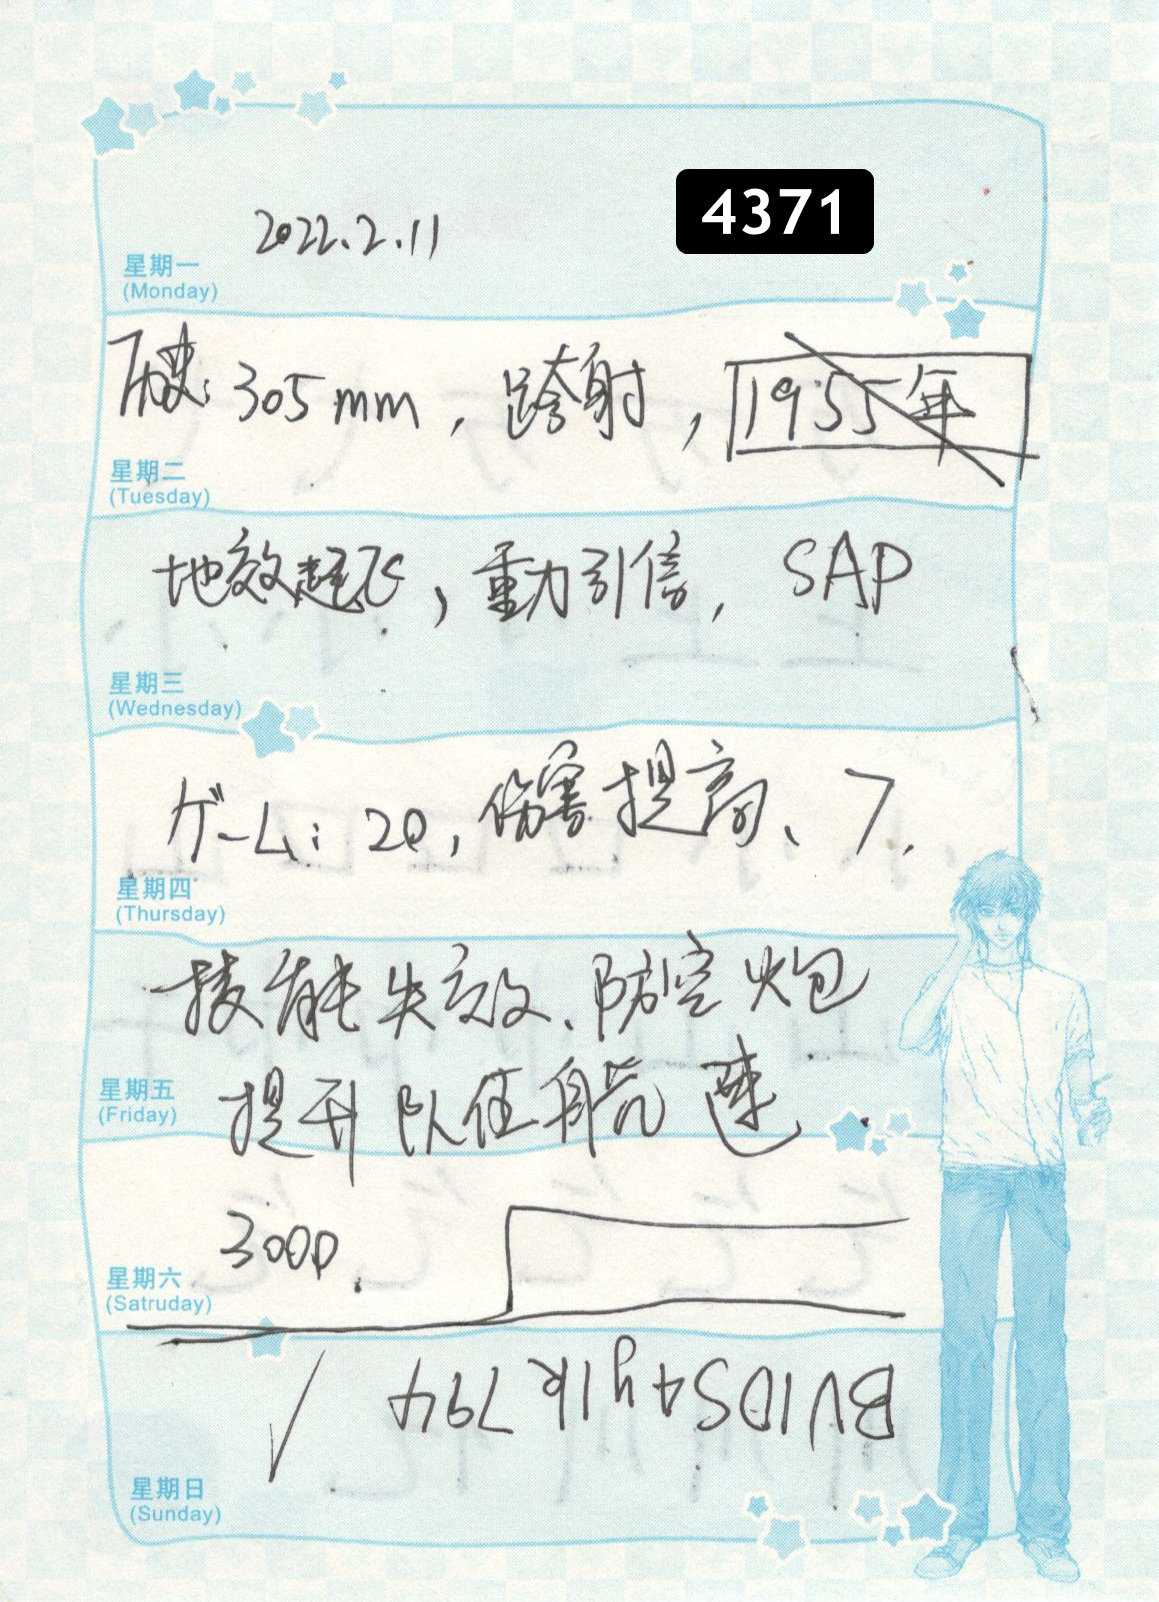 4371
2022.2.11
星期一
(Monday)
: 305mm, 跨射, 1955年
星期二
(Tuesday)
地效起飞, 重力引信, SAP
星期三
(Wednesday)
ゲーム: 20, 伤害提高、7.
星期四
(Thursday)
技能失效、防空炮
提升队伍航速.
星期五
(Friday)
3000.
星期六
(Satruday)
BV1DS4y1k794
星期日
(Sunday)